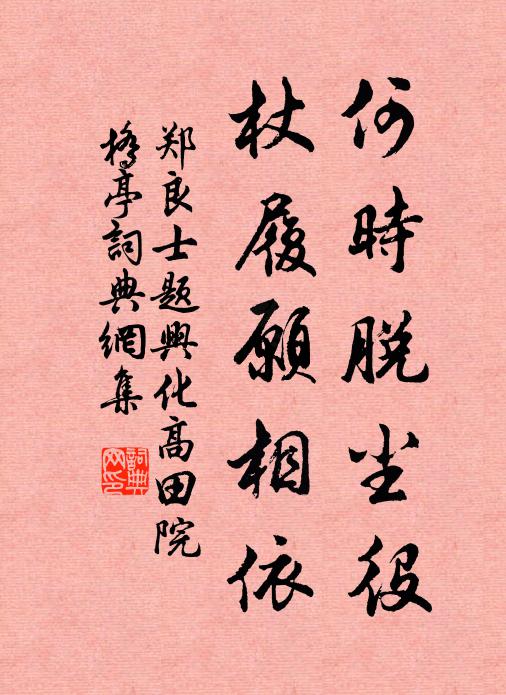 何時脱尘役
杖履願相依
郑良士题興化高田院
橋亭詞典網集
詞典
网印